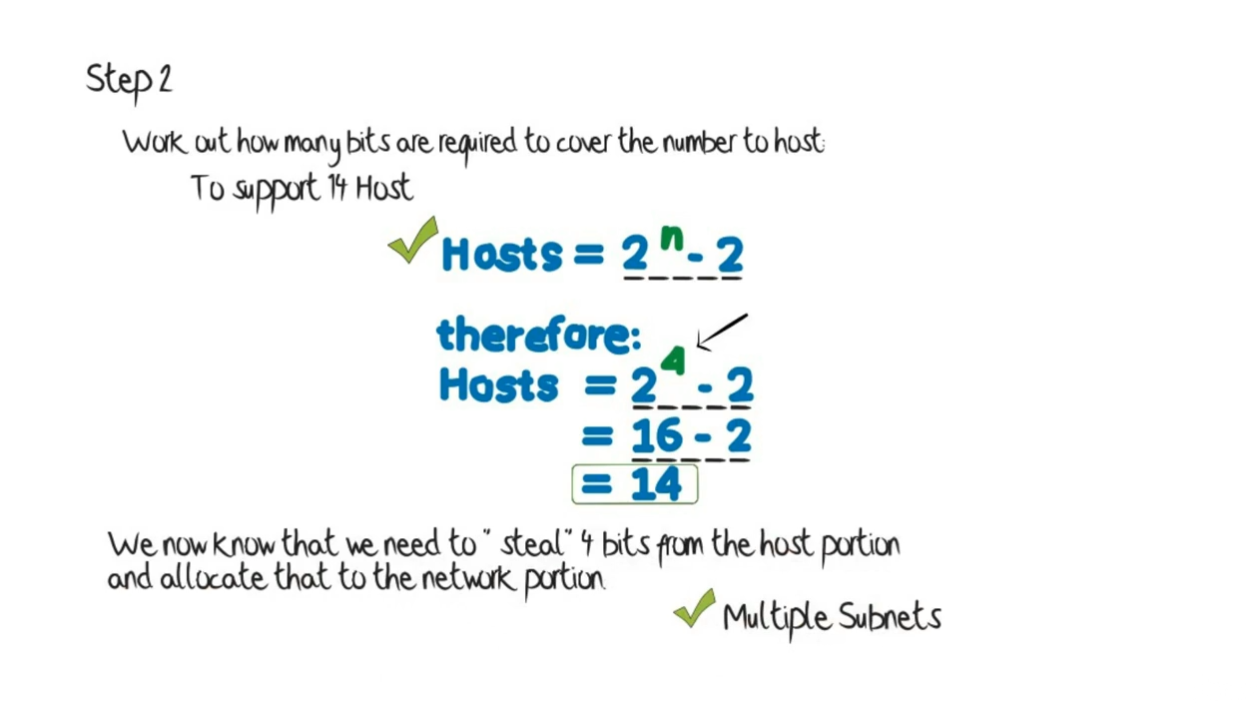 Step 2
Work out how many bits are required to cover the number to host:
To support 14 Host
Hosts = 2^n - 2
therefore:
Hosts = 2^4 - 2
= 16 - 2
= 14
We now know that we need to "steal" 4 bits from the host portion
and allocate that to the network portion.
Multiple Subnets